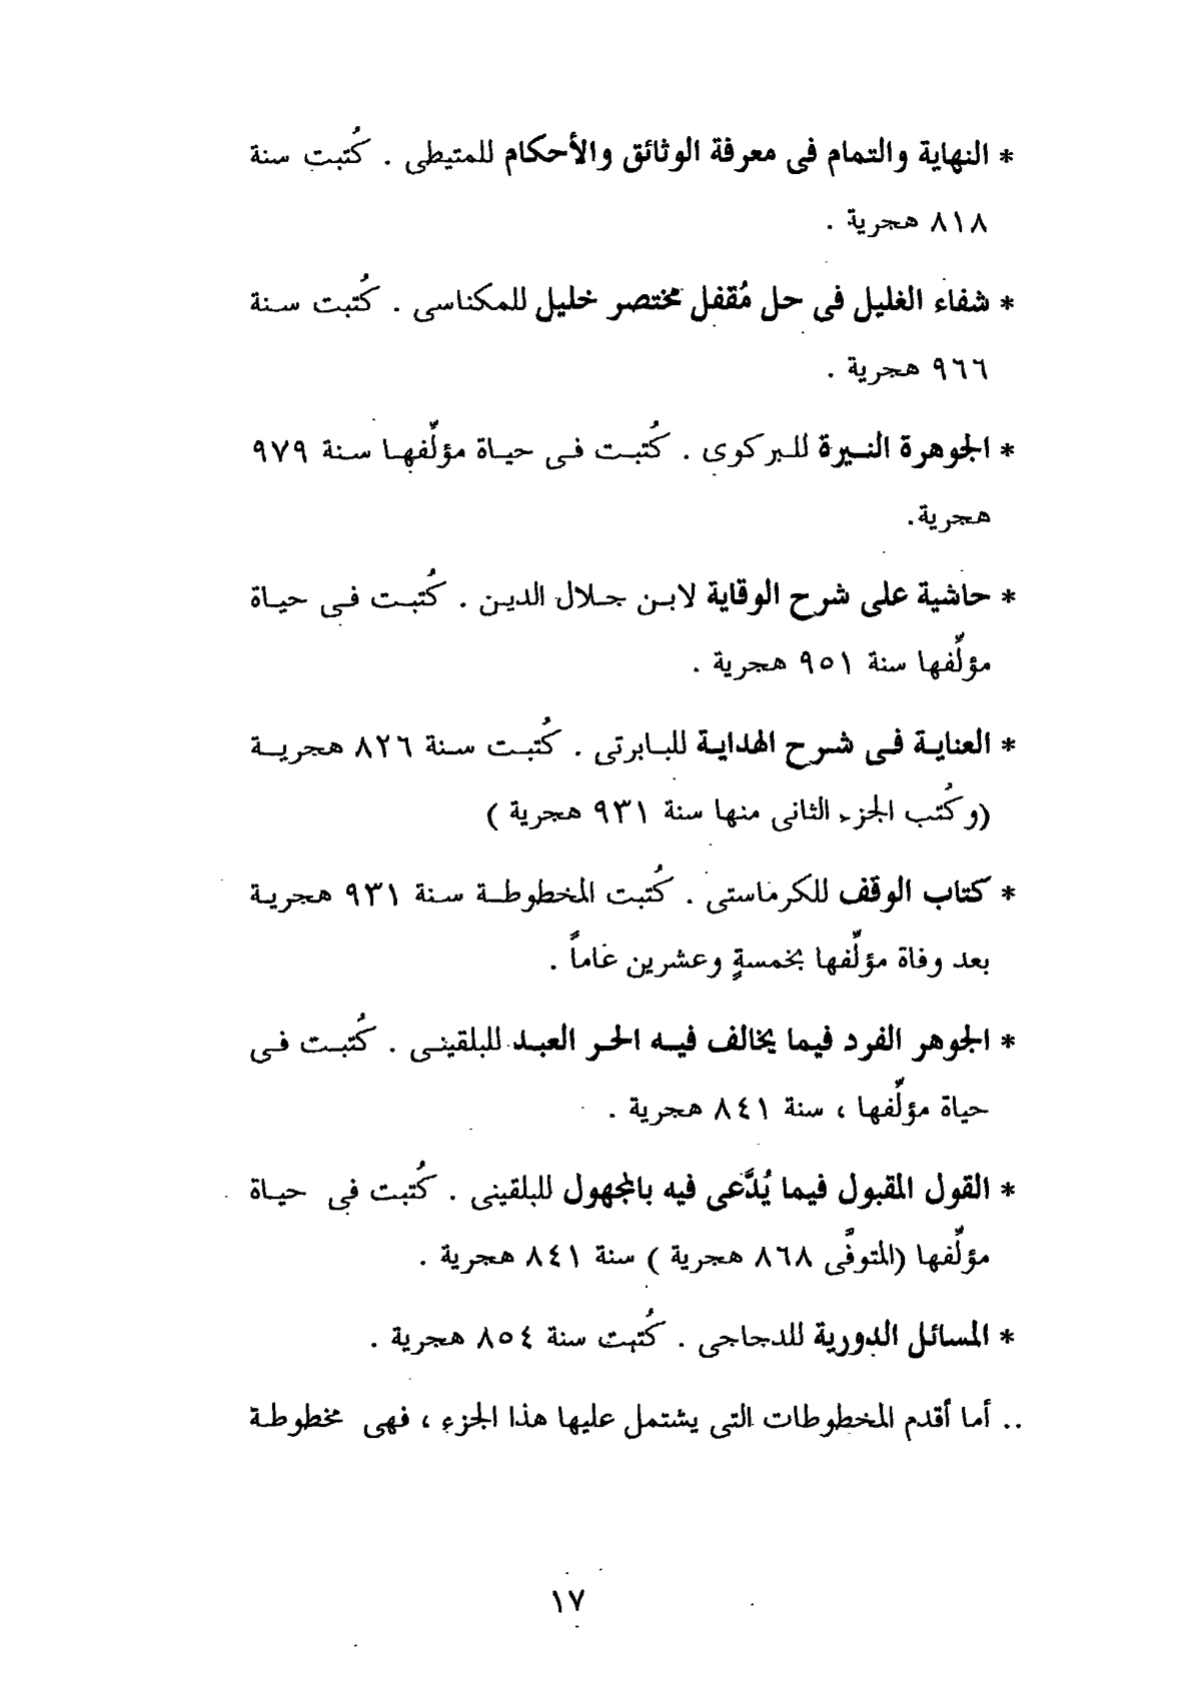 * النهاية والتمام فى معرفة الوثائق والأحكام للمتيطى . كُتبت سنة
٨١٨ هجرية .
* شفاء الغليل فى حل مُقفل مختصر خليل للمكناسى . كُتبت سنة
٩٦٦ هجرية .
* الجوهرة النيرة للبركوى . كُتبت فى حياة مؤلِّفها سنة ٩٧٩
هجرية.
* حاشية على شرح الوقاية لابن جلال الدين . كُتبت فى حياة
مؤلِّفها سنة ٩٥١ هجرية .
* العناية فى شرح الهداية للبابرتى . كُتبت سنة ٨٢٦ هجرية
(وكُتب الجزء الثانى منها سنة ٩٣١ هجرية )
* كتاب الوقف للكرماستى . كُتبت المخطوطة سنة ٩٣١ هجرية
بعد وفاة مؤلِّفها بخمسةٍ وعشرين عاماً .
* الجوهر الفرد فيما يخالف فيه الحر العبد للبلقينى . كُتبت فى
حياة مؤلِّفها ، سنة ٨٤١ هجرية .
* القول المقبول فيما يُدَّعى فيه بالمجهول للبلقينى . كُتبت فى حياة
مؤلِّفها (المتوفَّى ٨٦٨ هجرية ) سنة ٨٤١ هجرية .
* المسائل الدورية للدجاجى . كُتبت سنة ٨٥٤ هجرية .
.. أما أقدم المخطوطات التى يشتمل عليها هذا الجزء ، فهى مخطوطة
١٧